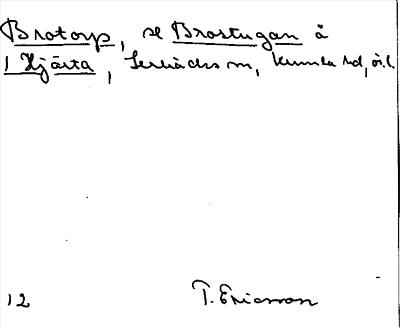 Brotorp, se Brostugan å
1 Hjärta, Lerbäcks sn, Kumla hd, ö.l.
12 T. Ericsson